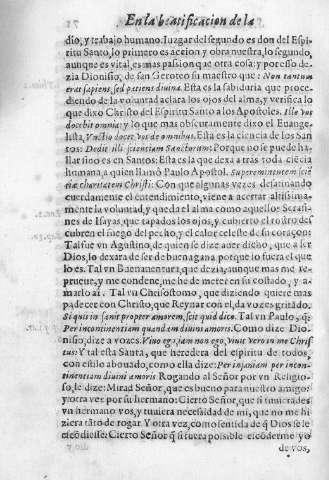 En la beatificacion de la
dio, y trabajo humano. Iuzgar del segundo es don del Espi
ritu Santo, lo primero es accion y obra nuestra, lo segundo,
aunque es vital, es mas passion que otra cosa: y por esso de-
zia Dionisio, de san Geroteo su maestro que: Non tantum
erat sapiens, sed patiens divina. Esta es la sabiduria que proce-
diendo de la voluntad aclara los ojos del alma, y verifica lo
que dixo Christo del Espiritu Santo a los Apostoles. Ille vos
docebit omnia: y lo que mas obscuramente dixo el Euange-
lista, Vnctio docet vos de omnibus. Esta es la ciencia de los San-
tos: Dedit illi scientiam Sanctorum: Porque no se puede ha-
llar sino es en Santos: Esta es la que dexa a tras toda ciẽcia
humana, a quien llamò Paulo Apostol. Supereminentem sciẽ
tiæ charitatem Christi: Con que algunas vezes desatinando
cuerdamente el entendimiento, viene a acertar altissima-
mente la voluntad, y queda el alma como aquellos Serafi-
nes de Isayas, que tapados los ojos, y cubierto el rostro des-
cubren el fuego del pecho, y el calor celeste de su coraçon:
Tal fue vn Agustino, de quien se dize auer dicho, que a ser
Dios, lo dexara de ser de buena gana porque lo fuera el que
lo es. Tal vn Buenauentura, que dezia, aunque mas me re-
prueue, y me condene, me he de meter en su costado, y a-
marlo aì. Tal vn Chrisostomo, que diziendo quiere mas
padecer con Christo, que Reynar con el, da vozes gritãdo:
Si quit in sanit propter amorem, scit quid dico. Tal vn Paulo, q̃:
Per incontinentiam quandam divini amoris. Como dize Dio-
nisio, dize a vozes. Vivo ego, iam non ego, vivit vero in me Chris
tus: Y tal esta Santa, que heredera del espiritu de todos,
con estilo abonado, como ella dize: Per injaniam per incon-
tinentiam divini amoris Rogando al Señor por vn Religio-
so, le dize: Mirad Señor, que es bueno para nuestro amigo:
y otra vez por su hermano: Cierto Señor, que si tuuierades
vn hermano vos, y tuuiera necessidad de mi, que no me hi
ziera tãto de rogar. Y otra vez, como sentida de q̃ Dios se le
escõdiesse: Cierto Señor q̃ si fuera possible escõderme yo
de vos,